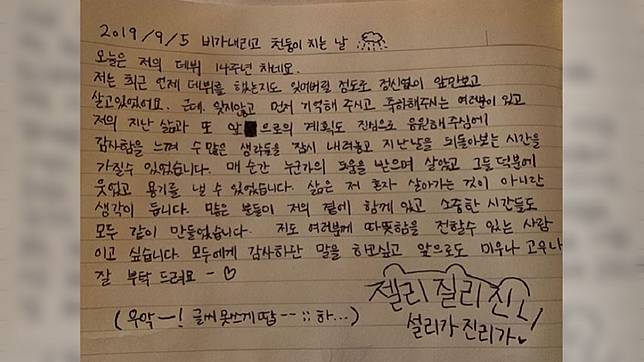 2019/9/5 비가내리고 천둥이 치는 날
오늘은 저의 데뷔 14주년 차네요.
저는 최근 언제 데뷔를 했는지도 잊어버릴 정도로 정신없이 앞만보고
살고있었어요. 근데, 잊지않고 먼저 기억해 주시고 축하해주시는 여러분이 있고
저의 지난 삶과 또 앞으로의 계획도 진심으로 응원해주심에
감사함을 느껴 수많은 생각들을 잠시 내려놓고 지난날을 되돌아보는 시간을
가질수 있었습니다. 매 순간 누군가의 도움을 받으며 살았고 그들 덕분에
웃었고 용기를 낼 수 있었습니다. 삶은 저 혼자 살아가는 것이 아니란
생각이 듭니다. 많은 분들이 저의 곁에 함께 있고 소중한 시간들도
모두 같이 만들었습니다. 저도 여러분께 따뜻함을 전할수 있는 사람
이고 싶습니다. 모두에게 감사하단 말을 하고싶고 앞으로도 미우나 고우나
잘 부탁 드려요 - ♡
젤리 질리 진리
설리가 진리가♥
(우악ㅡ! 글씨 못쓰게땁 -- ;; 하...)